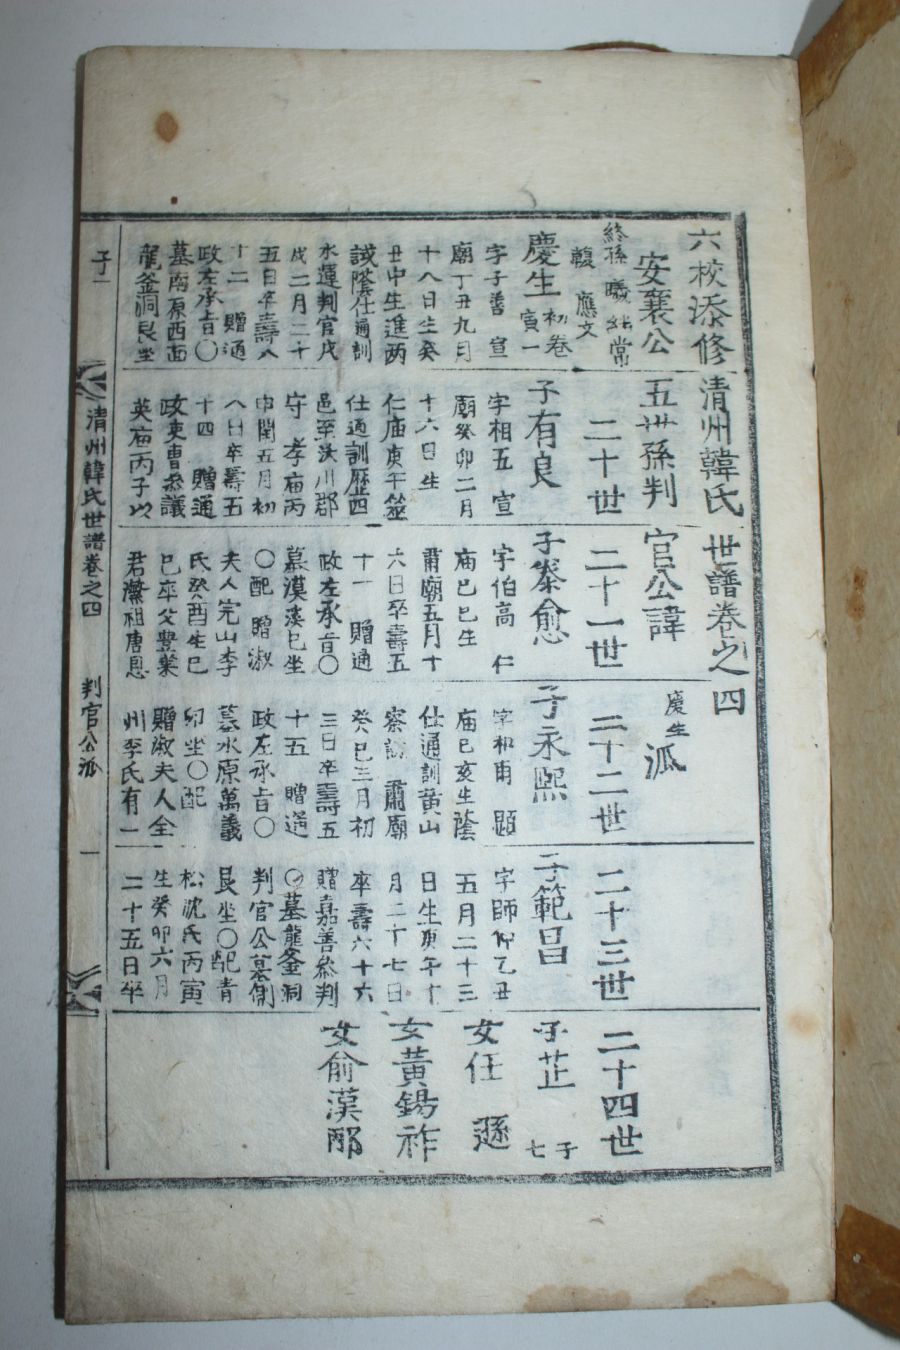 六校添修清州韓氏世譜卷之四
安襄公五世孫判官公諱慶生派
終孫 曦 常
馥 應文
二十世
二十一世
二十二世
二十三世
二十四世
慶生 初卷寅一
字子善 宣
廟丁丑九月
十八日生癸
丑中生進两
誠蔭仕通訓
水運判官戌
戌二月二十
五日卒壽八
十二 贈通
政左承旨〇
墓南原西面
龍釜洞艮坐
子有良
字相五 宣
廟癸卯二月
十六日生
仁庙庚午筮
仕通訓歷四
邑至洪川郡
守 孝庙丙
申閏五月初
八日卒壽五
十四 贈通
政吏曹參議
英庙丙子以
子泰愈
字伯高 仁
庙己巳生
肅廟五月十
六日卒壽五
十一 贈通
政左承旨〇
墓漠溪巳坐
〇配 贈淑
夫人完山李
氏癸酉生巳
巳卒父豊業
君瀿祖唐恩
子永熙
字和甫 顯
庙己亥生蔭
仕通訓黄山
察訪 肅廟
癸巳三月初
三日卒壽五
十五 贈通
政左承旨〇
墓水原萬義
卯坐〇配
贈淑夫人全
州李氏有一
子範昌
字師仲乙丑
五月二十三
日生庚午十
月二十七日
卒壽六十六
贈嘉善參判
〇墓龍釜洞
判官公墓側
艮坐〇配青
松沈氏丙寅
生癸卯六月
二十五日卒
子芷 子七
女任遜
女黄鍚祚
女俞漢邴
子一
清州韓氏世譜卷之四 判官公派 一